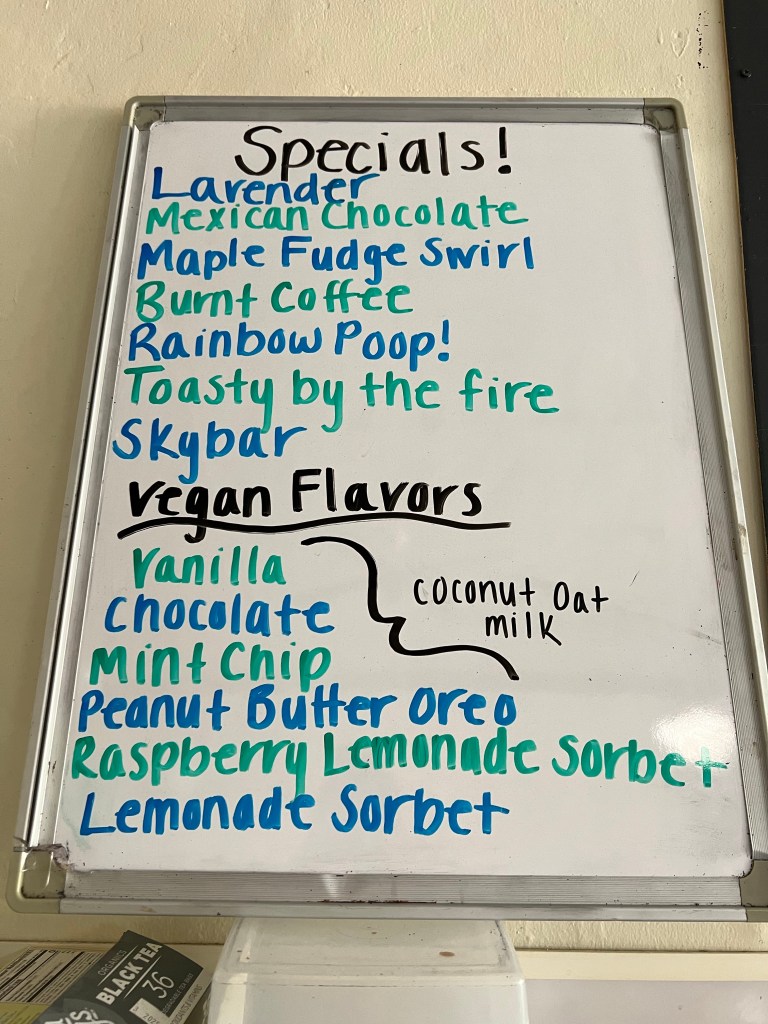 Specials!
Lavender
Mexican Chocolate
Maple Fudge Swirl
Burnt Coffee
Rainbow Poop!
Toasty by the fire
Skybar
Vegan Flavors
Vanilla
Chocolate
Mint Chip
Peanut Butter Oreo
Raspberry Lemonade Sorbet
Lemonade Sorbet
coconut oat
milk
ORGANIC
BLACK TEA
36